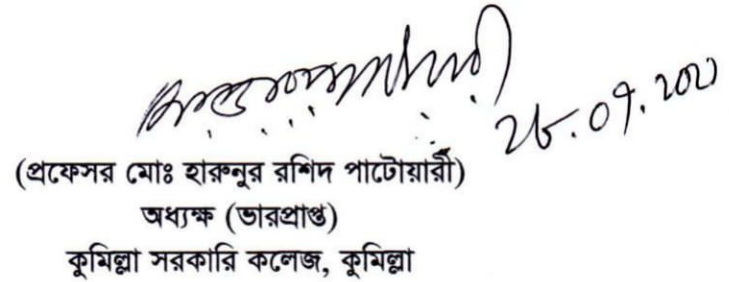 (প্রফেসর মোঃ হারুনুর রশিদ পাটোয়ারী)
অধ্যক্ষ (ভারপ্রাপ্ত)
কুমিল্লা সরকারি কলেজ, কুমিল্লা